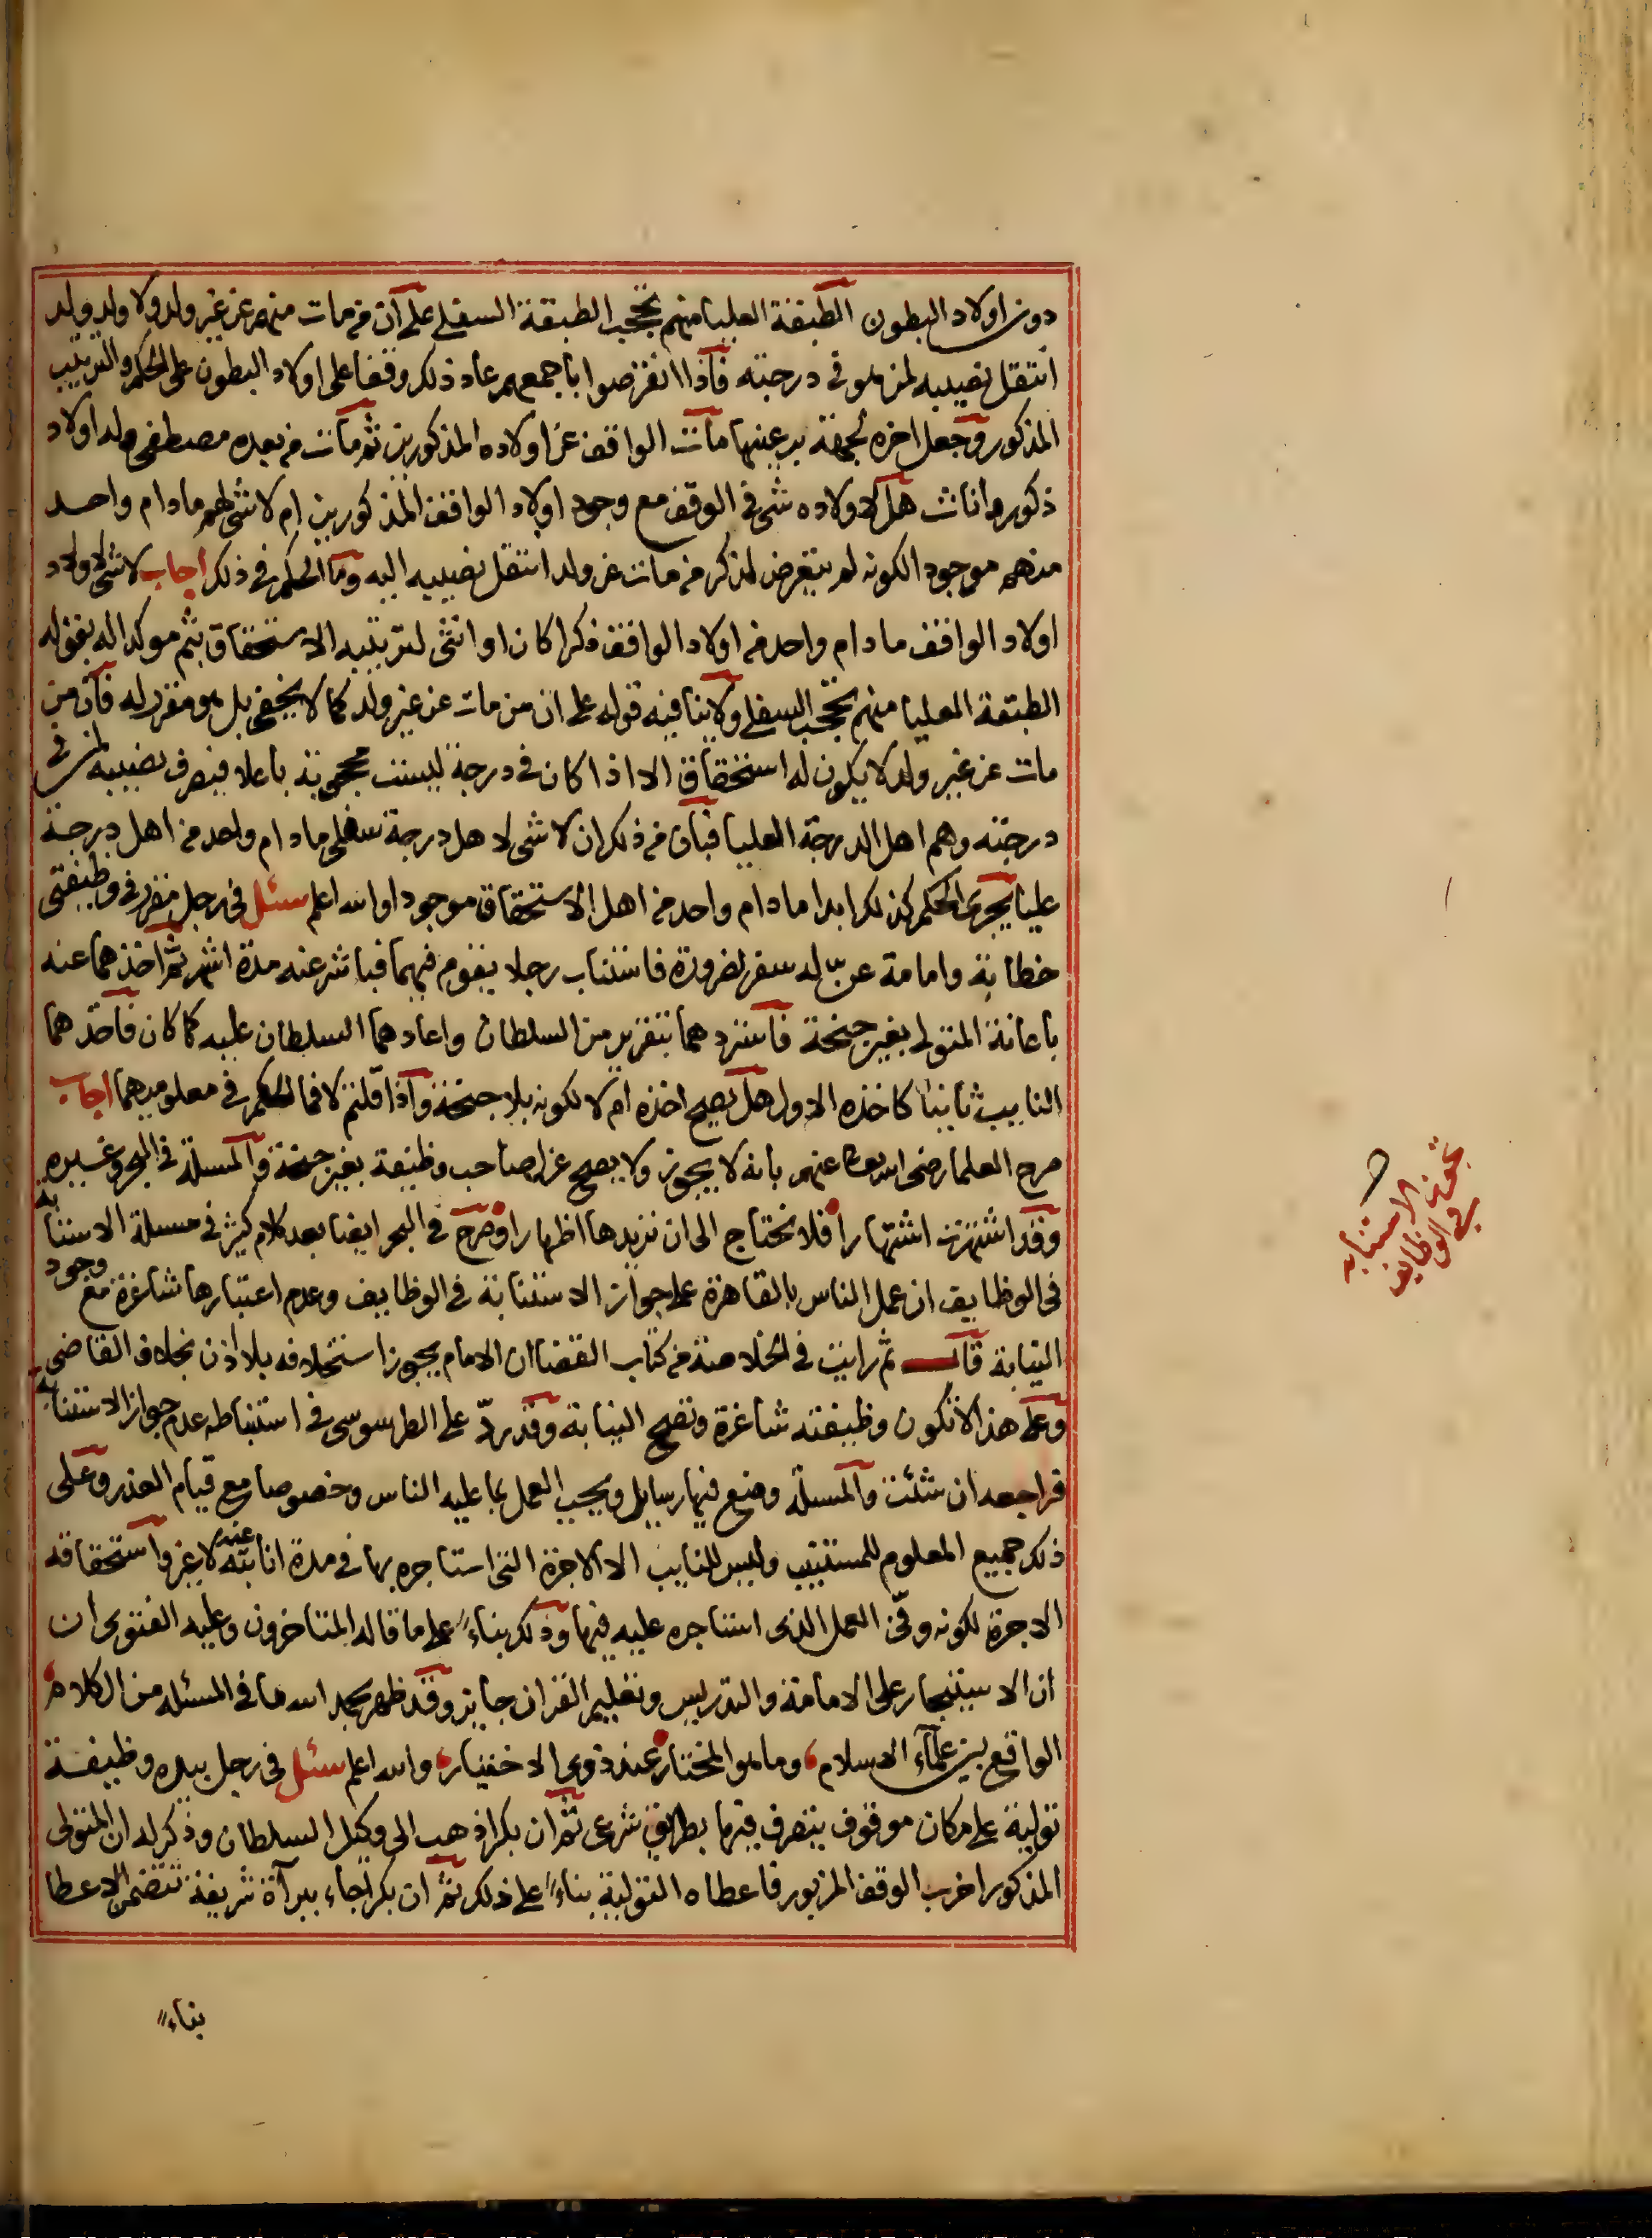 دون اولاد البطون الطبقة العليا منهم تحجب الطبقة السفلى على ان من مات منهم عن غير ولد ولا ولد ولد
انتقل نصيبه لمن هو في درجته فاذا انقرضوا باجمعهم عاد ذلك وقفا على اولاد البطون على الحكم والترتيب
المذكور وجعل اخره لجهة بر عينها مات الواقف عن اولاده المذكورين ثم مات من بعده مصطفى وله اولاد
ذكور واناث هل لاولاده شى في الوقف مع وجود اولاد الواقف المذكورين ام لا شى لهم ما دام واحد
منهم موجود الكونه لم يتعرض لذكر من مات عن ولد انتقل نصيبه اليه وما الحكم في ذلك اجاب لا شى لاولاد
اولاد الواقف ما دام واحد من اولاد الواقف ذكرا كان او انثى لترتيبه الاستحقاق بثم موكدا له بقوله
الطبقة العليا منهم تحجب السفلى ولا ينافيه قوله على ان من مات عن غير ولد كما لا يخفى بل هو مقرر له فان من
مات عن غير ولد لا يكون له استحقاق الا اذا كان في درجة ليست محجوبة باعلا فيصرف نصيبه لمن في
درجته وهم اهل الدرجة العليا فبان من ذلك ان لا شى لاهل درجة سفلى ما دام واحد من اهل درجة
عليا يجرى الحكم كذلك ابدا ما دام واحد من اهل الاستحقاق موجودا والله اعلم سئل في رجل مقرر في وظيفتي
خطابة وامامة عن له سفر لضرورة فاستناب رجلا يقوم فيهما فباشر عنه مدة اشهر ثم اخذهما عنه
باعانة المتولى بغير جنحة فاستردهما بتقرير من السلطان واعادهما السلطان عليه كما كان فاخذهما
النايب ثانيا كاخذه الاول هل يصح اخذه ام لا لكونه بلا جنحة واذا قلتم لا فما الحكم في معلومهما اجاب
صرح العلما رضى الله تعالى عنهم بانه لا يجوز ولا يصح عزل صاحب وظيفة بغير جنحة والمسلة في البحر وغيره
وقد اشتهرت اشتهارا فلا نحتاج الى ان نزيدها اظهارا وصرح في البحر ايضا بعد كلام كثير في مسلة الاستنابه
في الوظايف ان عمل الناس بالقاهرة على جواز الاستنابة في الوظايف وعدم اعتبارها شاغرة مع وجود
النيابة قال ثم رايت في الخلاصة من كتاب القضا ان الامام يجوز استخلافه بلا اذن بخلاف القاضى
وعلى هذا لا تكون وظيفته شاغرة وتصح النيابة وقد ردّ على الطرسوسى في استنباطه عدم جواز الاستنابه
فراجعه ان شئت والمسلة وضع فيها رسايل ويجب العمل بما عليه الناس وخصوصا مع قيام العذر وعلى
ذلك جميع المعلوم للمستنيب وليس للنايب الا الاجرة التى استاجره بها في مدة انابته عنه لا غير واستحقاقه
الاجرة لكونه وفّى العمل الذى استاجره عليه فيها وذلك بناءً على ما قاله المتاخرون وعليه الفتوى ان
ان الاستيجار على الامامة والتدريس وتعليم القران جايز وقد ظهر بحمد الله ما في المسئلة من الكلام
الواقع بين علماء الاسلام وما هو المختار عند ذوى الاختيار والله اعلم سئل في رجل بيده وظيفة
تولية على مكان موقوف يتصرف فيها بطريق شرعى ثم ان بكرا ذهب الى وكيل السلطان وذكر له ان المتولى
المذكور اخرب الوقف المزبور فاعطاه التولية بناءً على ذلك ثم ان بكر اجاء ببرآة شريفة تتضمن الاعطا
بناءً
الاستنابه
في الوظايف